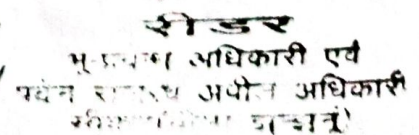 रीडर
भू-प्रबन्ध अधिकारी एवं
पदेन राजस्व अपील अधिकारी